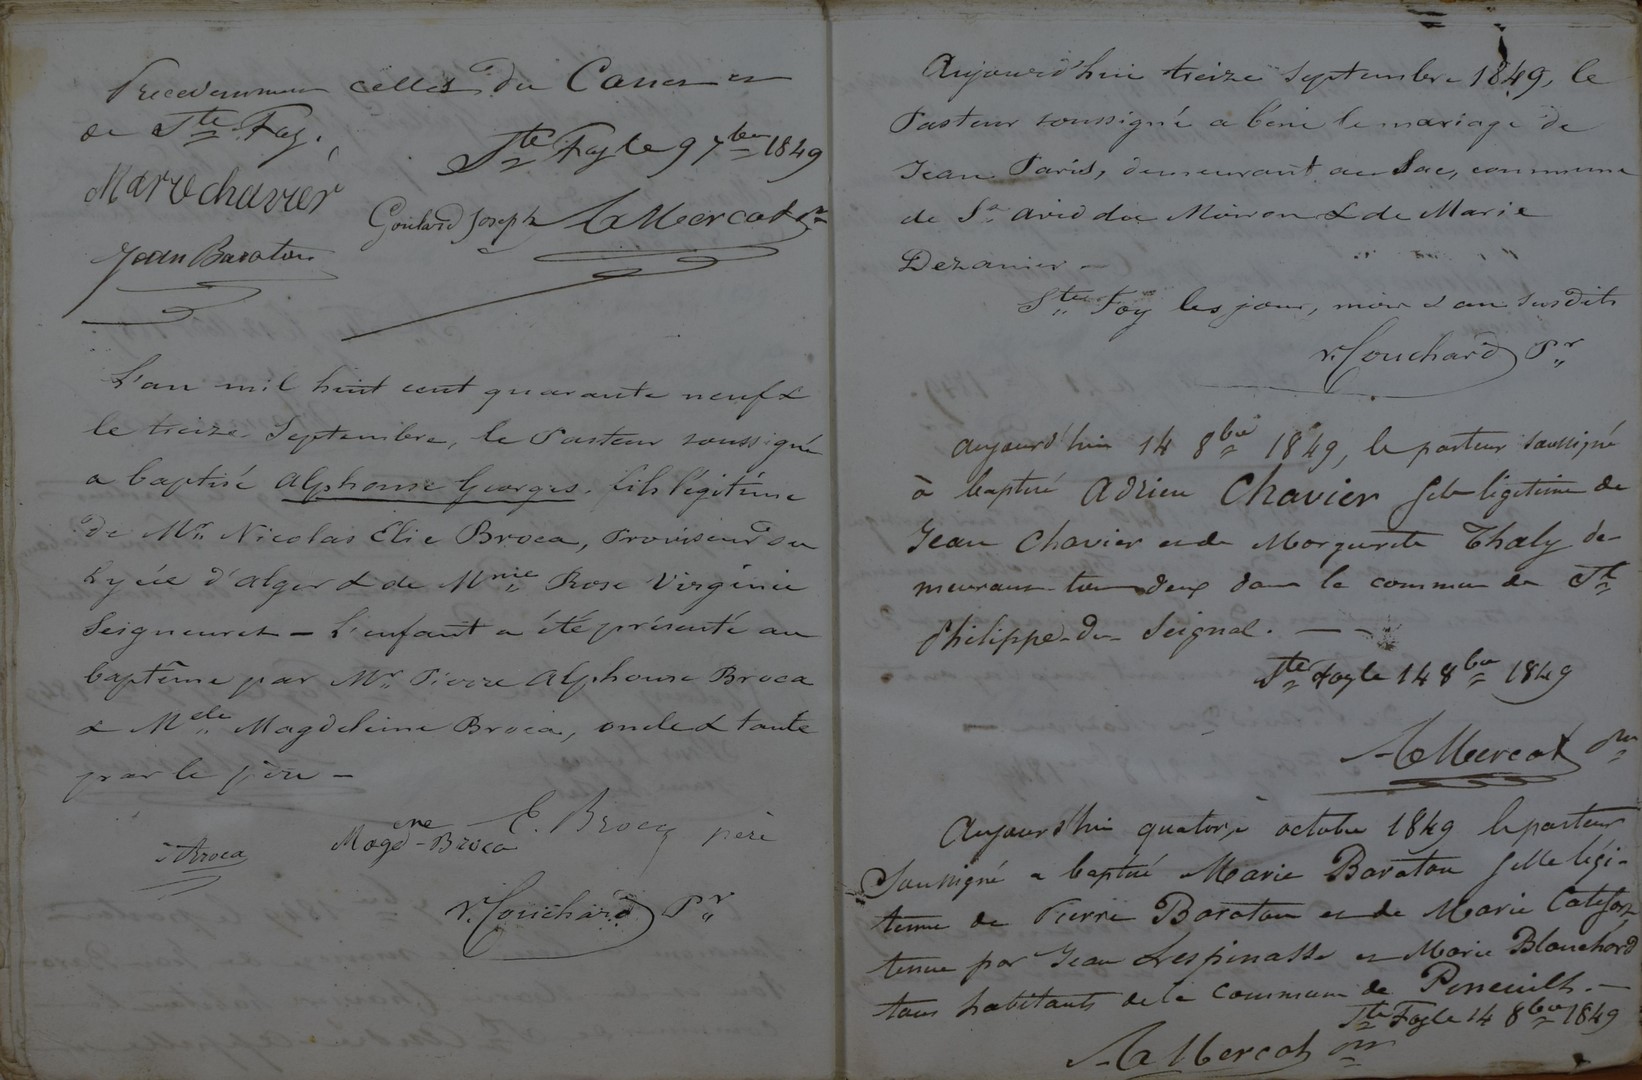 Precedemment celles du Canon et
de Ste Foy.
Ste Foy le 9 7bre 1849
Marie chavier
Goulard Joseph A Mercat Pr
Jean Baraton
L'an mil huit cent quarante neuf &
le treize Septembre, le Pasteur soussigné
a baptisé Alphonse Georges, fils légitime
de Mr. Nicolas Elie Broca, Proviseur du
Lycée d'Alger & de Mme Rose Virginie
Seigneuret – L'enfant a été présenté au
baptême par Mr. Pierre Alphonse Broca
& Melle Magdeleine Broca, oncle & tante
par le père –
Broca Magdne Broca E. Broca père
V. Couchard Pr
Aujourd'hui treize Septembre 1849, le
Pasteur soussigné a béni le mariage de
Jean Paris, demeurant au Sac, commune
de St avid du Moiron & de Marie
Dezanier –
Ste Foy les jour, mois & an susdits
V. Couchard Pr
aujourd'hui 14 8bre 1849, le pasteur soussigné
à baptisé Adrien Chavier fils légitime de
Jean Chavier et de Marguerite Thaly de-
meurans tous deux dans la commune de St
Philippe-du-Seignal. – –
Ste Foy le 14 8bre 1849
A Mercat Pr
Aujourd'hui quatorze octobre 1849 le pasteur
Soussigné a baptisé Marie Baraton fille légi-
time de Pierre Baraton et de Marie
tenue par Jean Lespinasse et Marie Blanchard
tous habitants de la commune de Pineuilh. –
Ste Foy le 14 8bre 1849
A Mercat Pr